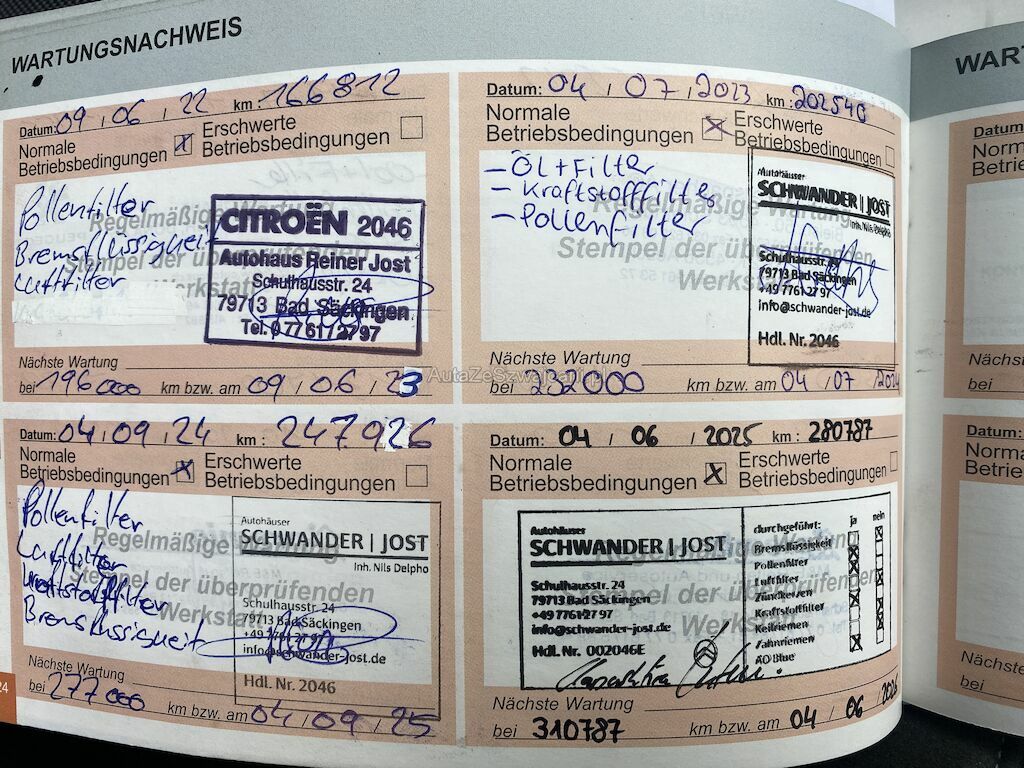 WARTUNGSNACHWEIS
Datum: 09 / 06 / 22 km 166812
Normale
Betriebsbedingungen
Erschwerte
Betriebsbedingungen
Pollenfilter
Bremsflüssigkeit
Luftfilter
Regelmäßige Wartung
Stempel der überprüfenden
Werkstatt
CITROËN 2046
Autohaus Reiner Jost
Schulhausstr. 24
79713 Bad Säckingen
Tel. 0 77 61 / 27 97
Nächste Wartung
bei 196000 km bzw. am 09 / 06 / 23
Datum: 04 / 07 / 2023 km : 202540
Normale
Betriebsbedingungen
Erschwerte
Betriebsbedingungen
- Öl + Filter
- Kraftstofffilter
- Pollenfilter
Regelmäßige Wartung
Stempel der überprüfenden
Werkstatt
Autohäuser
SCHWANDER | JOST
Inh. Nils Delpho
Schulhausstr. 24
79713 Bad Säckingen
+49 7761 27 97
info@schwander-jost.de
Hdl. Nr. 2046
Nächste Wartung
bei 232000 km bzw. am 04 / 07 / 2024
AutaZeSzwajcarii.pl
Datum: 04 / 09 / 24 km : 247926
Normale
Betriebsbedingungen
Erschwerte
Betriebsbedingungen
Pollenfilter
Luftfilter
Kraftstofffilter
Bremsflüssigkeit
Regelmäßige Wartung
Stempel der überprüfenden
Werkstatt
Autohäuser
SCHWANDER | JOST
Inh. Nils Delpho
Schulhausstr. 24
79713 Bad Säckingen
+49 7761 27 97
info@schwander-jost.de
Hdl. Nr. 2046
Nächste Wartung
bei 277000 km bzw. am 04 / 09 / 25
24
Datum: 04 / 06 / 2025 km : 280787
Normale
Betriebsbedingungen
Erschwerte
Betriebsbedingungen
Regelmäßige Wartung
Stempel der überprüfenden
Werkstatt
Autohäuser
SCHWANDER | JOST
Schulhausstr. 24
79713 Bad Säckingen
+49 7761 27 97
info@schwander-jost.de
Hdl. Nr. 002046E
durchgeführt: ja nein
Bremsflüssigkeit
Pollenfilter
Luftfilter
Zündkerzen
Kraftstoffilter
Keilriemen
Zahnriemen
AD Blue
Nächste Wartung
bei 310787 km bzw. am 04 / 06 / 2026
WART
Datum:
Norm
Betrie
Nächs
bei
Datum:
Norma
Betrie
Nächste
bei